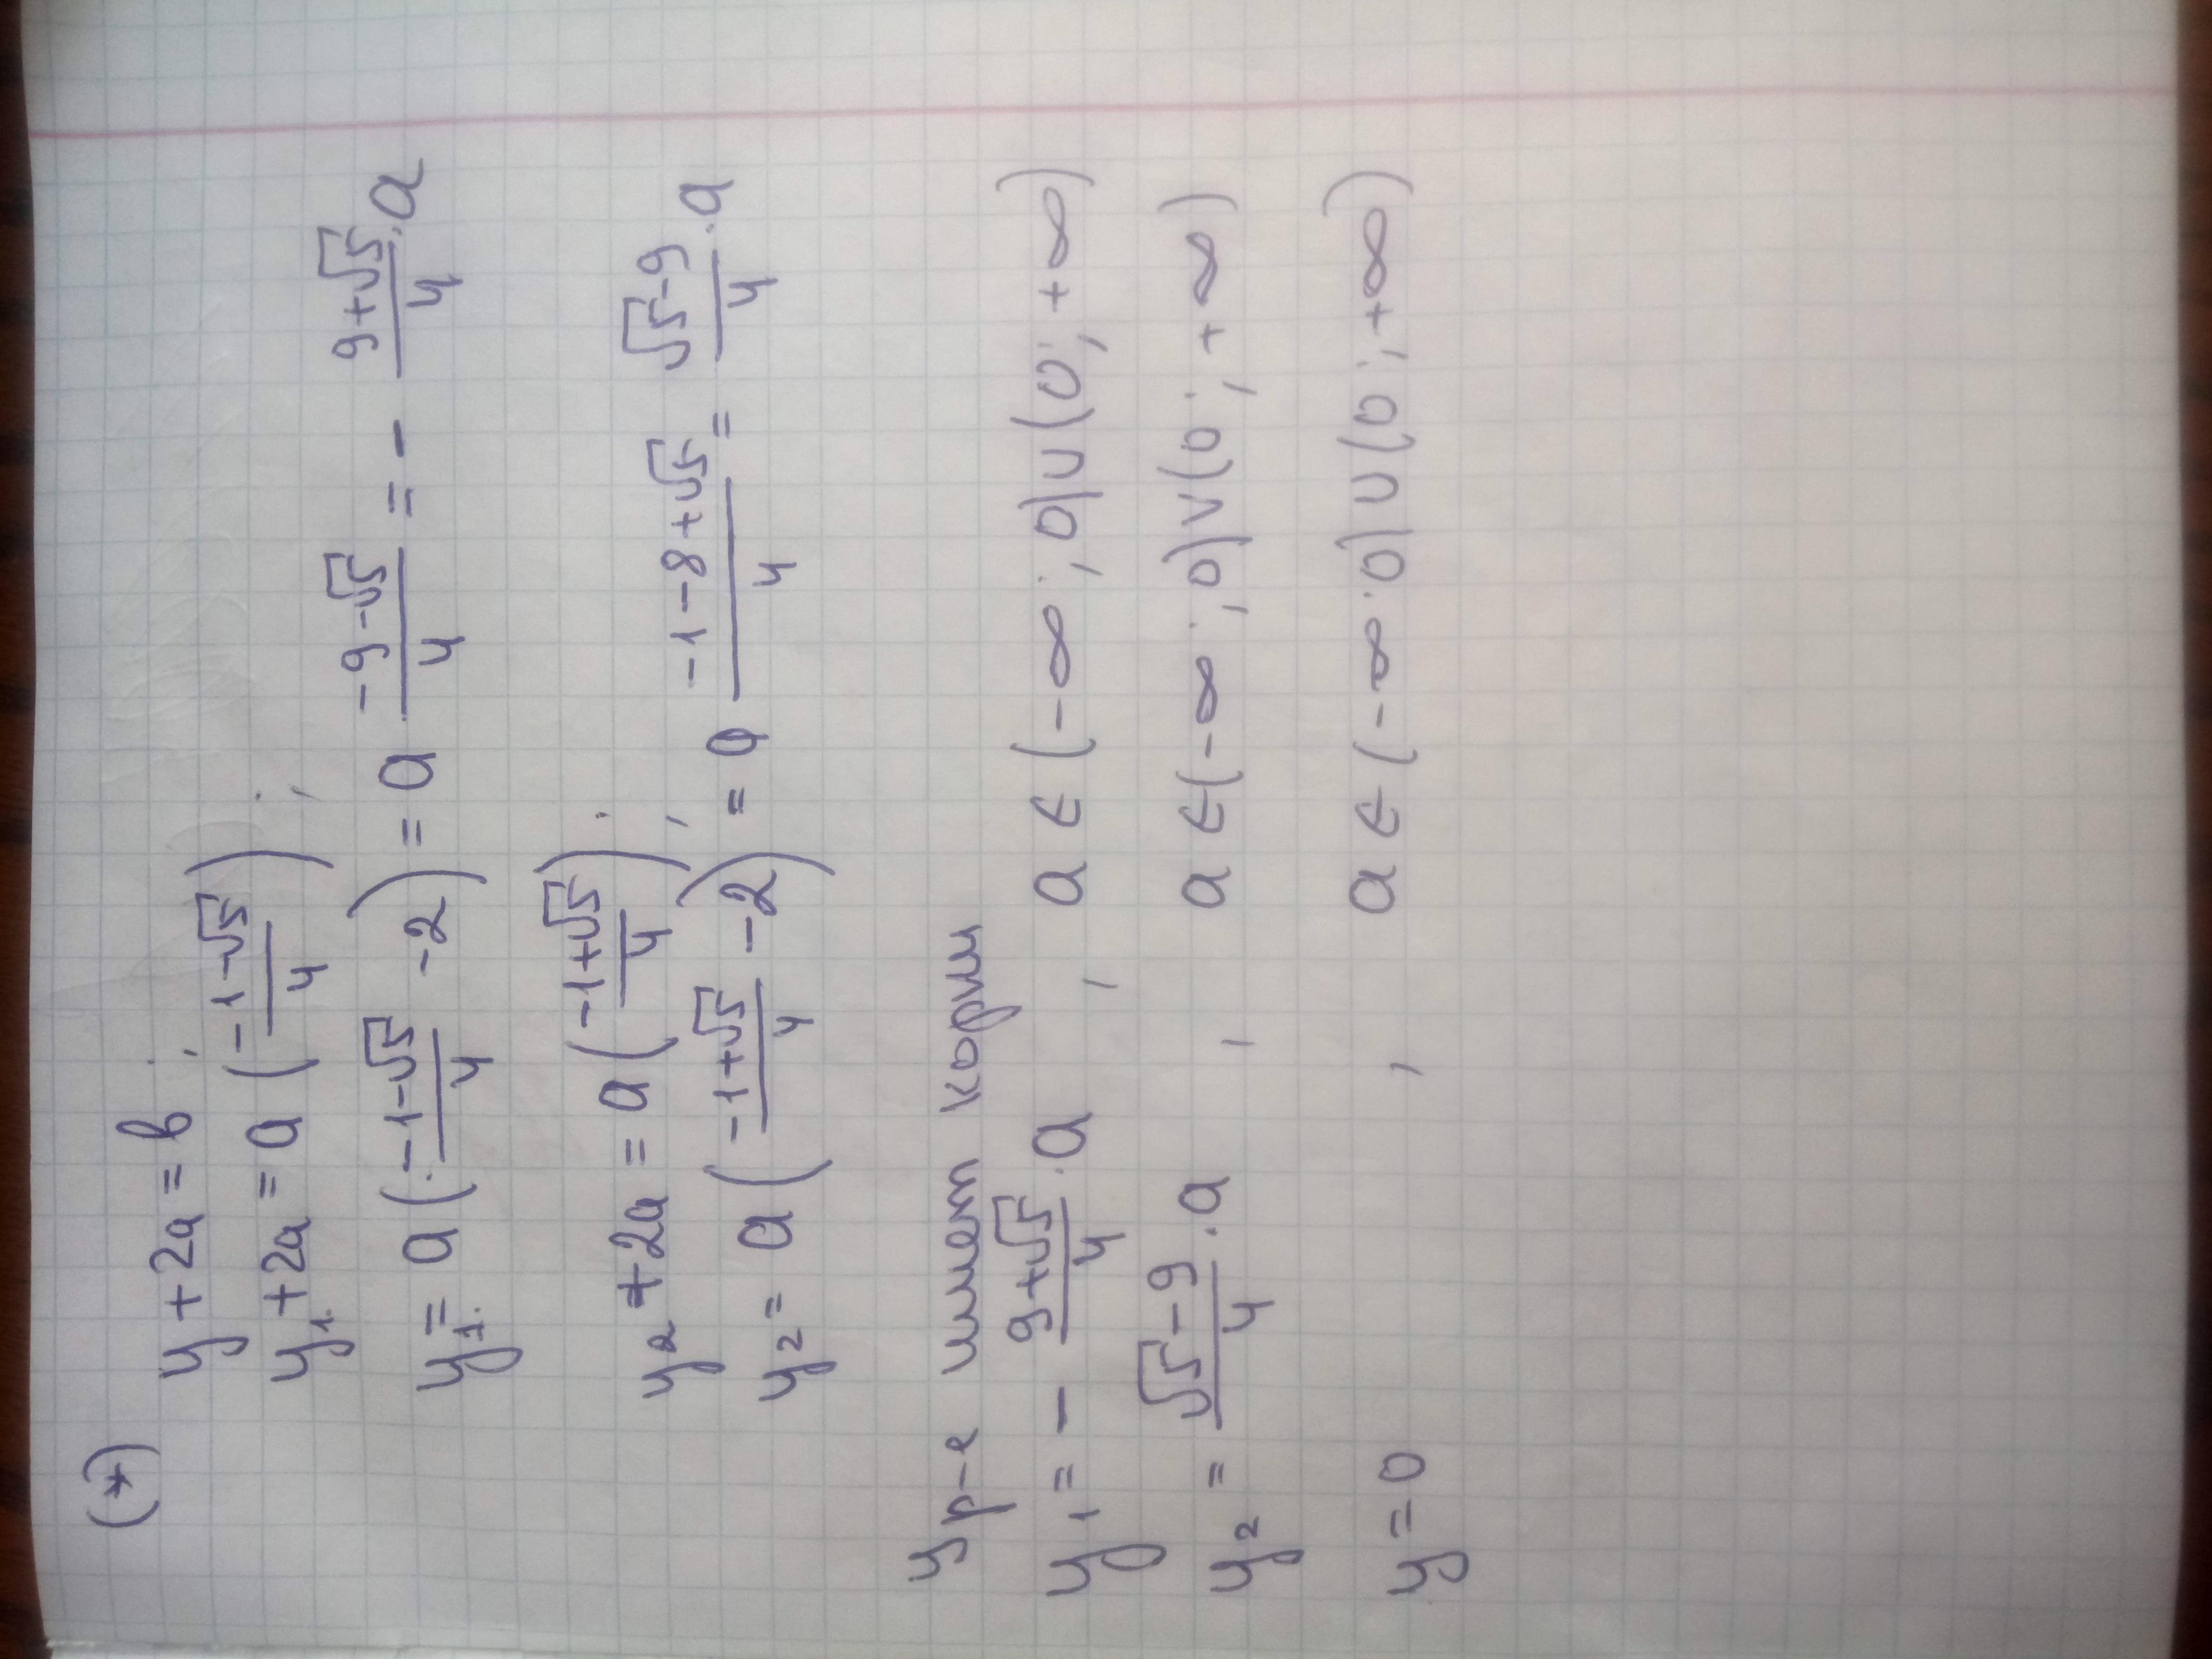 (*)
y + 2a = b ;
y₁ + 2a = a ( (-1-√5)/4 ) ;
y₁ = a ( (-1-√5)/4 - 2 ) = a · (-9-√5)/4 = - (9+√5)/4 · a
y₂ + 2a = a ( (-1+√5)/4 ) ;
y₂ = a ( (-1+√5)/4 - 2 ) = a (-1-8+√5)/4 = (√5-9)/4 · a
Ур-е имеет корни
y₁ = - (9+√5)/4 · a , a ∈ (-∞ ; 0) ∪ (0 ; +∞)
y₂ = (√5-9)/4 · a , a ∈ (-∞ ; 0) ∪ (0 ; +∞)
y = 0 , a ∈ (-∞ ; 0) ∪ (0 ; +∞)